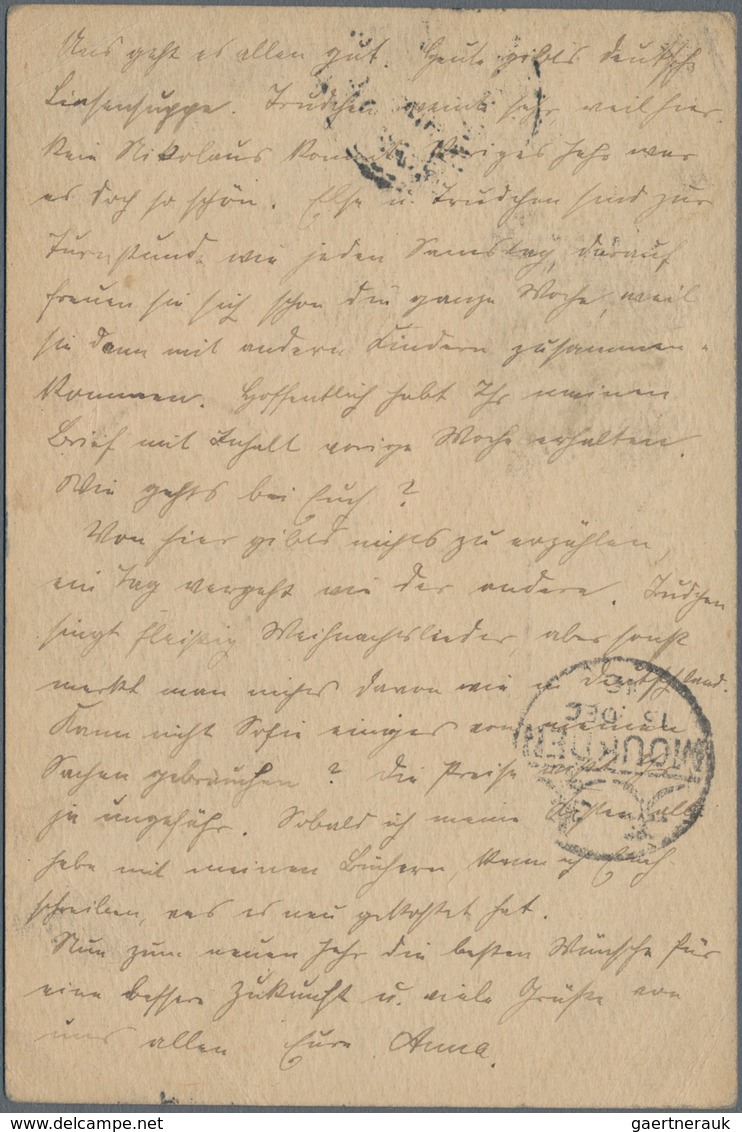 Uns geht es allen gut. Heute gibts deutsche
Linsensuppe. Trudchen weint sehr, weil hier
kein Nikolaus kommt. Voriges Jahr war
es doch so schön. Else u. Trudchen sind zur
Turnstunde wie jeden Samstag, darauf
freuen sie sich schon die ganze Woche, weil
sie dann mit andern Kindern zusammen-
kommen. Hoffentlich habt Ihr meinen
Brief mit Inhalt vorige Woche erhalten.
Wie gehts bei Euch?
Von hier gibts nichts zu erzählen,
ein Tag vergeht wie der andere. Trudchen
singt fleißig Weihnachtslieder, aber sonst
merkt man nichts davon wie in Deutschland.
Kann nicht Sofie einiges von meinen
Sachen gebrauchen? Die Preise
ja ungefähr. Sobald ich meine Kisten alle
habe mit meinen Büchern, kann ich Euch
schreiben, was es neu gekostet hat.
Nun zum neuen Jahr die besten Wünsche für
eine bessere Zukunft u. viele Grüße von
uns allen Eure Anna.
MOUKDEN
13 DEC
gaertnerauk